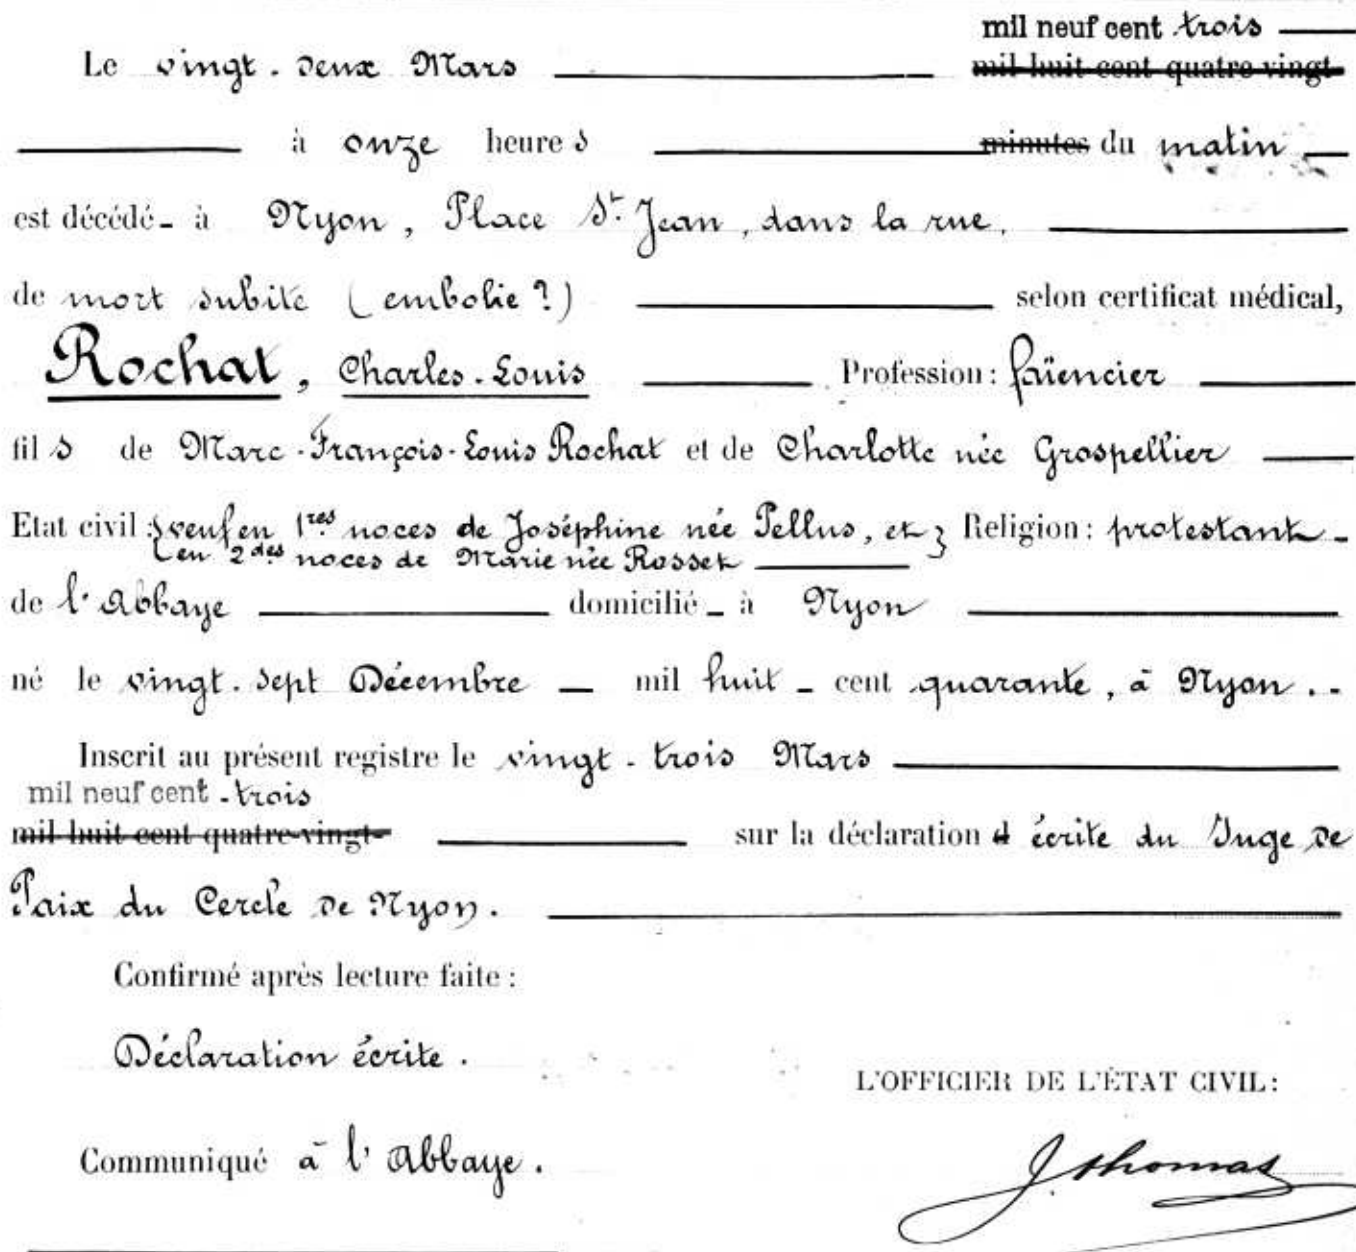 mil neuf cent trois
Le vingt-deux Mars mil huit cent quatre-vingt-
à onze heures minutes du matin
est décédé à Nyon, Place St. Jean, dans la rue,
de mort subite (embolie?) selon certificat médical,
Rochat, Charles-Louis Profession: faïencier
fils de Marc-François-Louis Rochat et de Charlotte née Grospellier
Etat civil: { veuf en 1res noces de Joséphine née Pellus, et } Religion: protestant
{ en 2des noces de Marie née Rosset
de l'Abbaye domicilié à Nyon
né le vingt-sept Décembre mil huit cent quarante, à Nyon.
Inscrit au présent registre le vingt-trois Mars
mil neuf cent trois
mil huit cent quatre-vingt- sur la déclaration d écrite du Juge de
Paix du Cercle de Nyon.
Confirmé après lecture faite:
Déclaration écrite.
L'OFFICIER DE L'ÉTAT CIVIL:
Communiqué à l'Abbaye.
J. Thomas